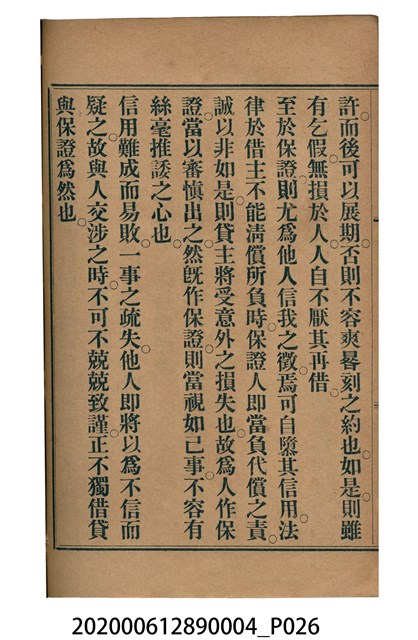 許而後可以展期。否則不容爽晷刻之約也。如是則雖
有乞假。無損於人。人自不厭其再借。
至於保證。則尤爲他人信我之徵。焉可自隳其信用。法
律於借主不能淸償所負時。保證人卽當負代償之責。
誠以非如是則貸主將受意外之損失也。故爲人作保
證。當以審愼出之。然旣作保證。則當視如己事。不容有
絲毫推諉之心也。
信用難成而易敗。一事之疏失。他人卽將以爲不信而
疑之。故與人交涉之時。不可不兢兢致謹。正不獨借貸
與保證爲然也。
202000612890004_P026